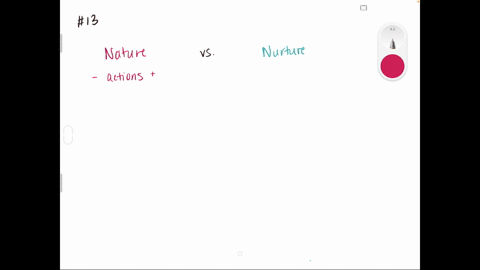 #13
Nature vs. Nurture
- actions +